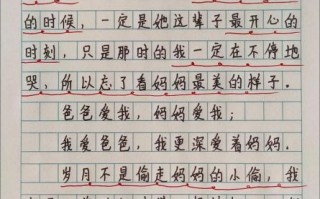 的时候，一定是她这辈子最开心的
时刻，只是那时的我一定在不停地
哭，所以忘了看妈妈最美的样子.
爸爸爱我，妈妈爱我；
我爱爸爸，我更深爱着妈妈.
岁月不是偷走妈妈的小偷，我